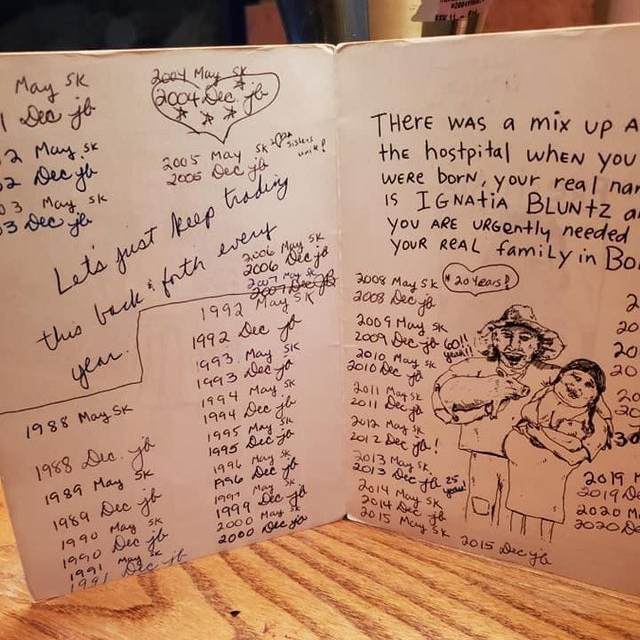 May SK
Dec jb
2 May SK
02 Dec jb
03 May SK
03 Dec jb
2004 May SK
2004 Dec jb
2005 May SK
sisters
unite!
2005 Dec jb
Let's just keep trading
this back & forth every
year.
2006 May SK
2006 Dec jb
2007 May SK
2007 Dec jb
1988 May SK
1988 Dec. jb
1989 May SK
1989 Dec jb
1990 May SK
1990 Dec jb
1991 May SK
1991 Dec jb
1992 May SK
1992 Dec jb
1993 May SK
1993 Dec jb
1994 May SK
1994 Dec jb
1995 May SK
1995 Dec jb
1996 May SK
1996 Dec jb
1997 May SK
1999 Dec jb
2000 May SK
2000 Dec jb
THERE WAS A MIX UP A
the hostpital when you
WERE born, your real nam
is IGNATIA BLUNTZ an
you ARE URGENTLY needed
YOUR REAL family in Bo
2008 May SK
20 years!
2008 Dec jb
2009 May SK
2009 Dec jb
60!!
yeah!!
2010 May SK
2010 Dec jb
2011 May SK
2011 Dec jb
2012 May SK
2012 Dec jb!
2013 May SK
2013 Dec jb
25
years!
2014 May SK
2014 Dec jb
2015 May SK
2015 Dec jb
2
20
20
20
20
2019 M
2019 D
2020 M
2020 De